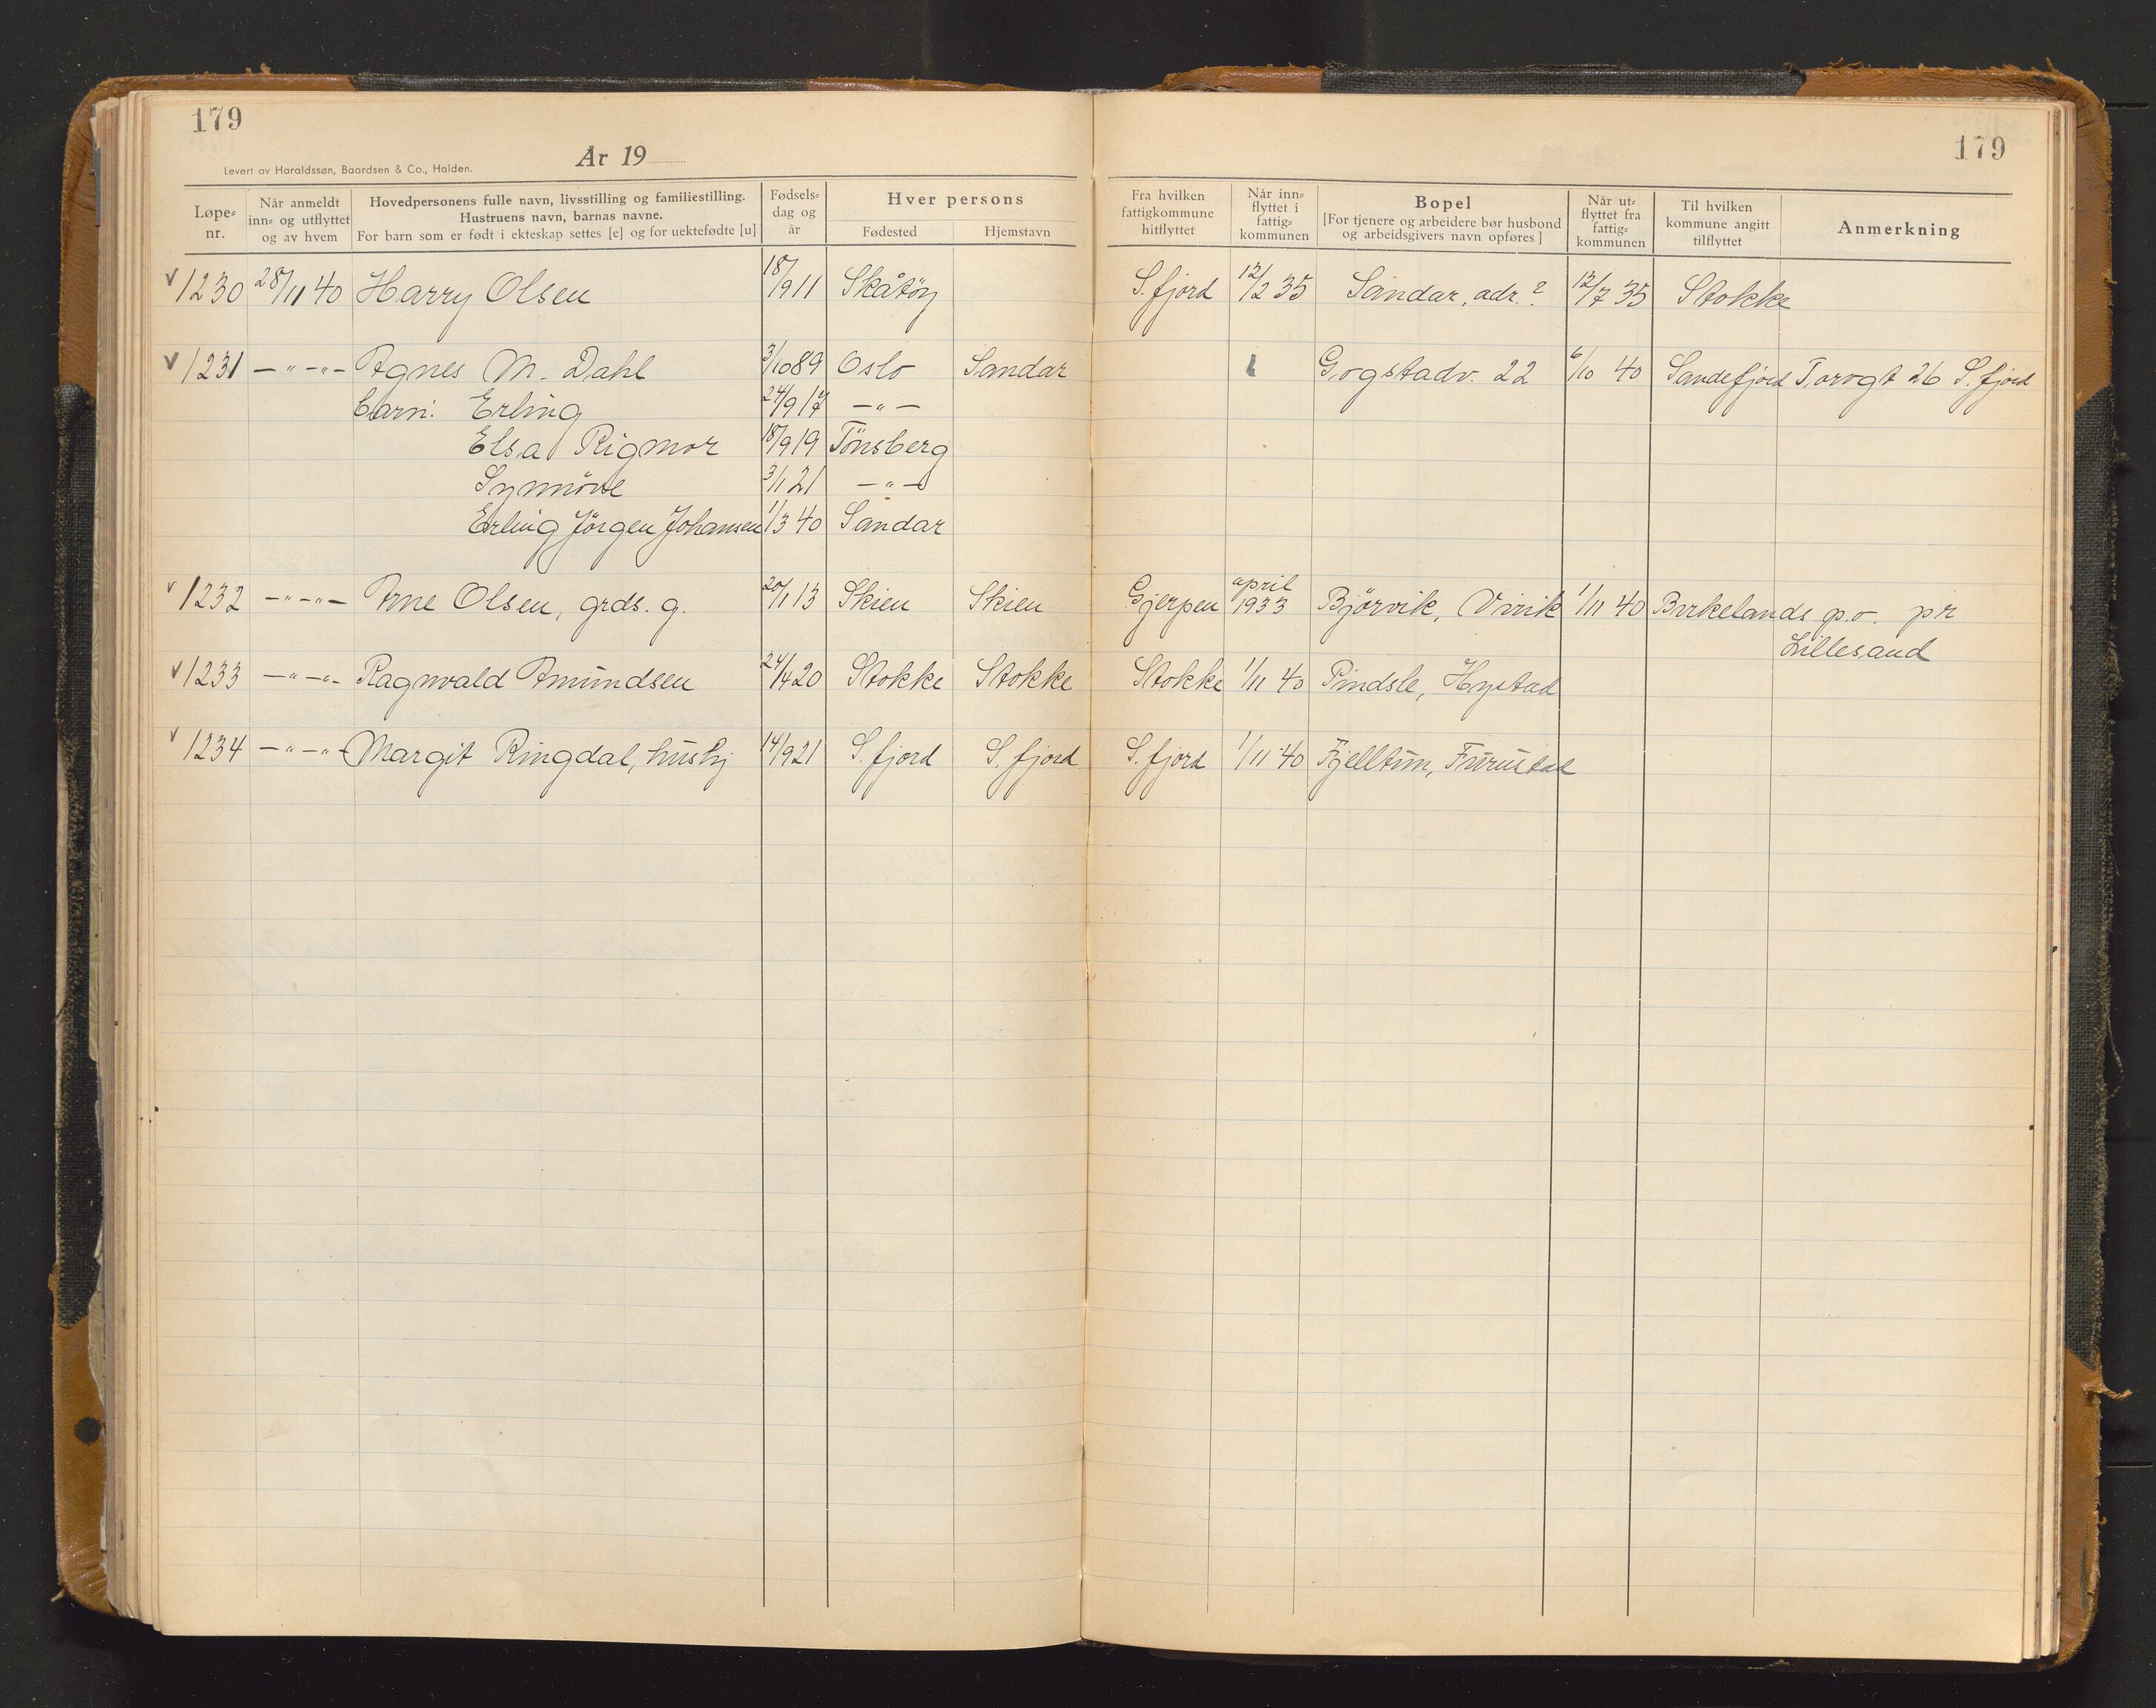 179
År 19
Levert av Haraldssøn, Baardsen & Co., Halden.
Løpe-
nr.
Når anmeldt
inn- og utflyttet
og av hvem
Hovedpersonens fulle navn, livsstilling og familiestilling.
Hustruens navn, barnas navne.
For barn som er født i ekteskap settes [e] og for uektefødte [u]
Fødsels-
dag og
år
Hver persons
Fødested Hjemstavn
179
Fra hvilken
fattigkommune
hitflyttet
Når inn-
flyttet i
fattig-
kommunen
Bopel
[For tjenere og arbeidere bør husbond
og arbeidsgivers navn opføres]
Når ut-
flyttet fra
fattig-
kommunen
Til hvilken
kommune angitt
tilflyttet
Anmerkning
v 1230 28/11 40 Harry Olsen 18/9 11 Skåtöy S.fjord 12/2 35 Sandar, adr.? 12/7 35 Stokke
v 1231 -"-"- Agnes M. Dahl 3/10 89 Oslo Sandar Gogstadv. 22 6/10 40 Sandefjord Torvgt 26 S.fjord
barn: Erling 24/9 17 -"-
Elsa Rigmor 18/9 19 Tönsberg
Synnöve 3/1 21 -"-
Erling Jörgen Johansen 1/3 40 Sandar
v 1232 -"-"- Arne Olsen, grds. g. 20/11 13 Skien Skien Gjerpen april 1933 Björvik, Virik 1/11 40 Birkelands p.o. pr
Lillesand
v 1233 -"-"- Ragnvald Amundsen 24/4 20 Stokke Stokke Stokke 1/11 40 Pindsle, Hystad
v 1234 -"-"- Margit Ringdal, hushj 14/9 21 S.fjord S.fjord S.fjord 1/11 40 Fjelltun, Furustad